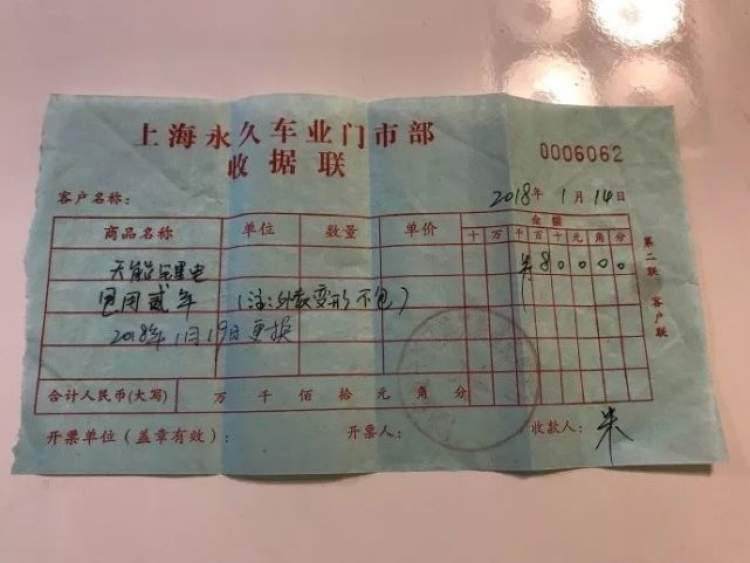 上海永久车业门市部
收据联
0006062
客户名称：
2018年 1月 14日
商品名称 单位 数量 单价 金额
十 万 千 百 十 元 角 分
天能 电 8 0 0 0 0
包用贰年 (注：外敲变形不包)
2018年1月19日更换
合计人民币(大写) 万 千 佰 拾 元 角 分
开票单位(盖章有效)： 开票人： 收款人：朱
第二联 客户联